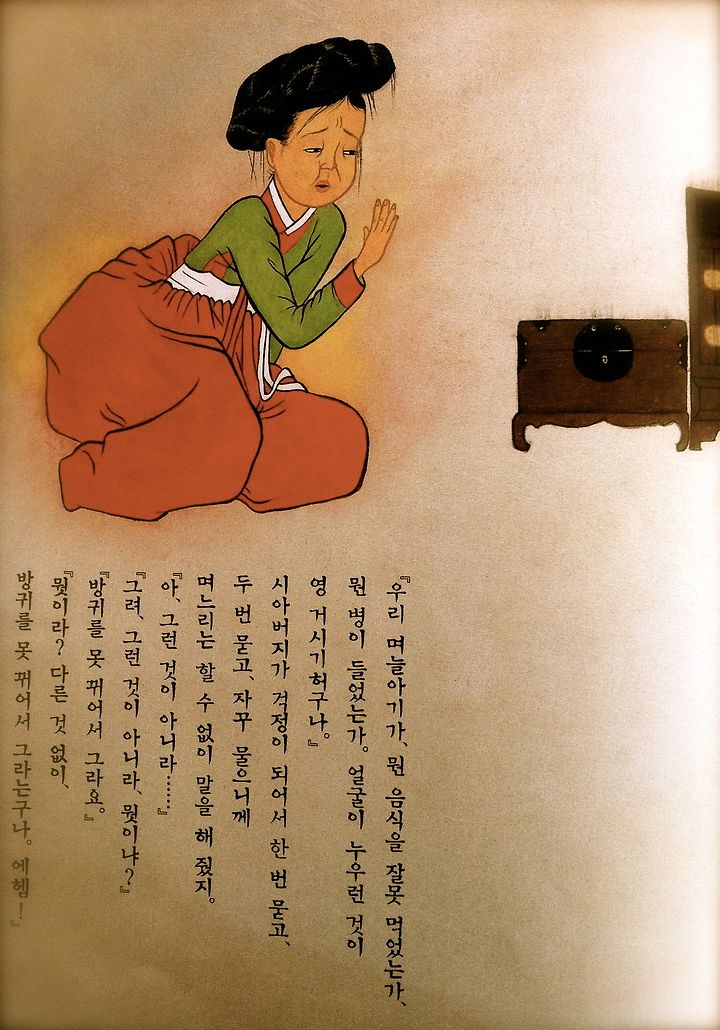 『우리 며늘아기가, 뭔 음식을 잘못 먹었는가,
뭔 병이 들었는가. 얼굴이 누우런 것이
영 거시기허구나.』
시아버지가 걱정이 되어서 한 번 묻고,
두 번 묻고, 자꾸 물으니께
며느리는 할 수 없이 말을 해 줬지.
『아, 그런 것이 아니라……』
『그려, 그런 것이 아니라, 뭣이냐?』
『방귀를 못 뀌어서 그라요.』
『뭣이라? 다른 것 없이,
방귀를 못 뀌어서 그라는구나. 에헴!』